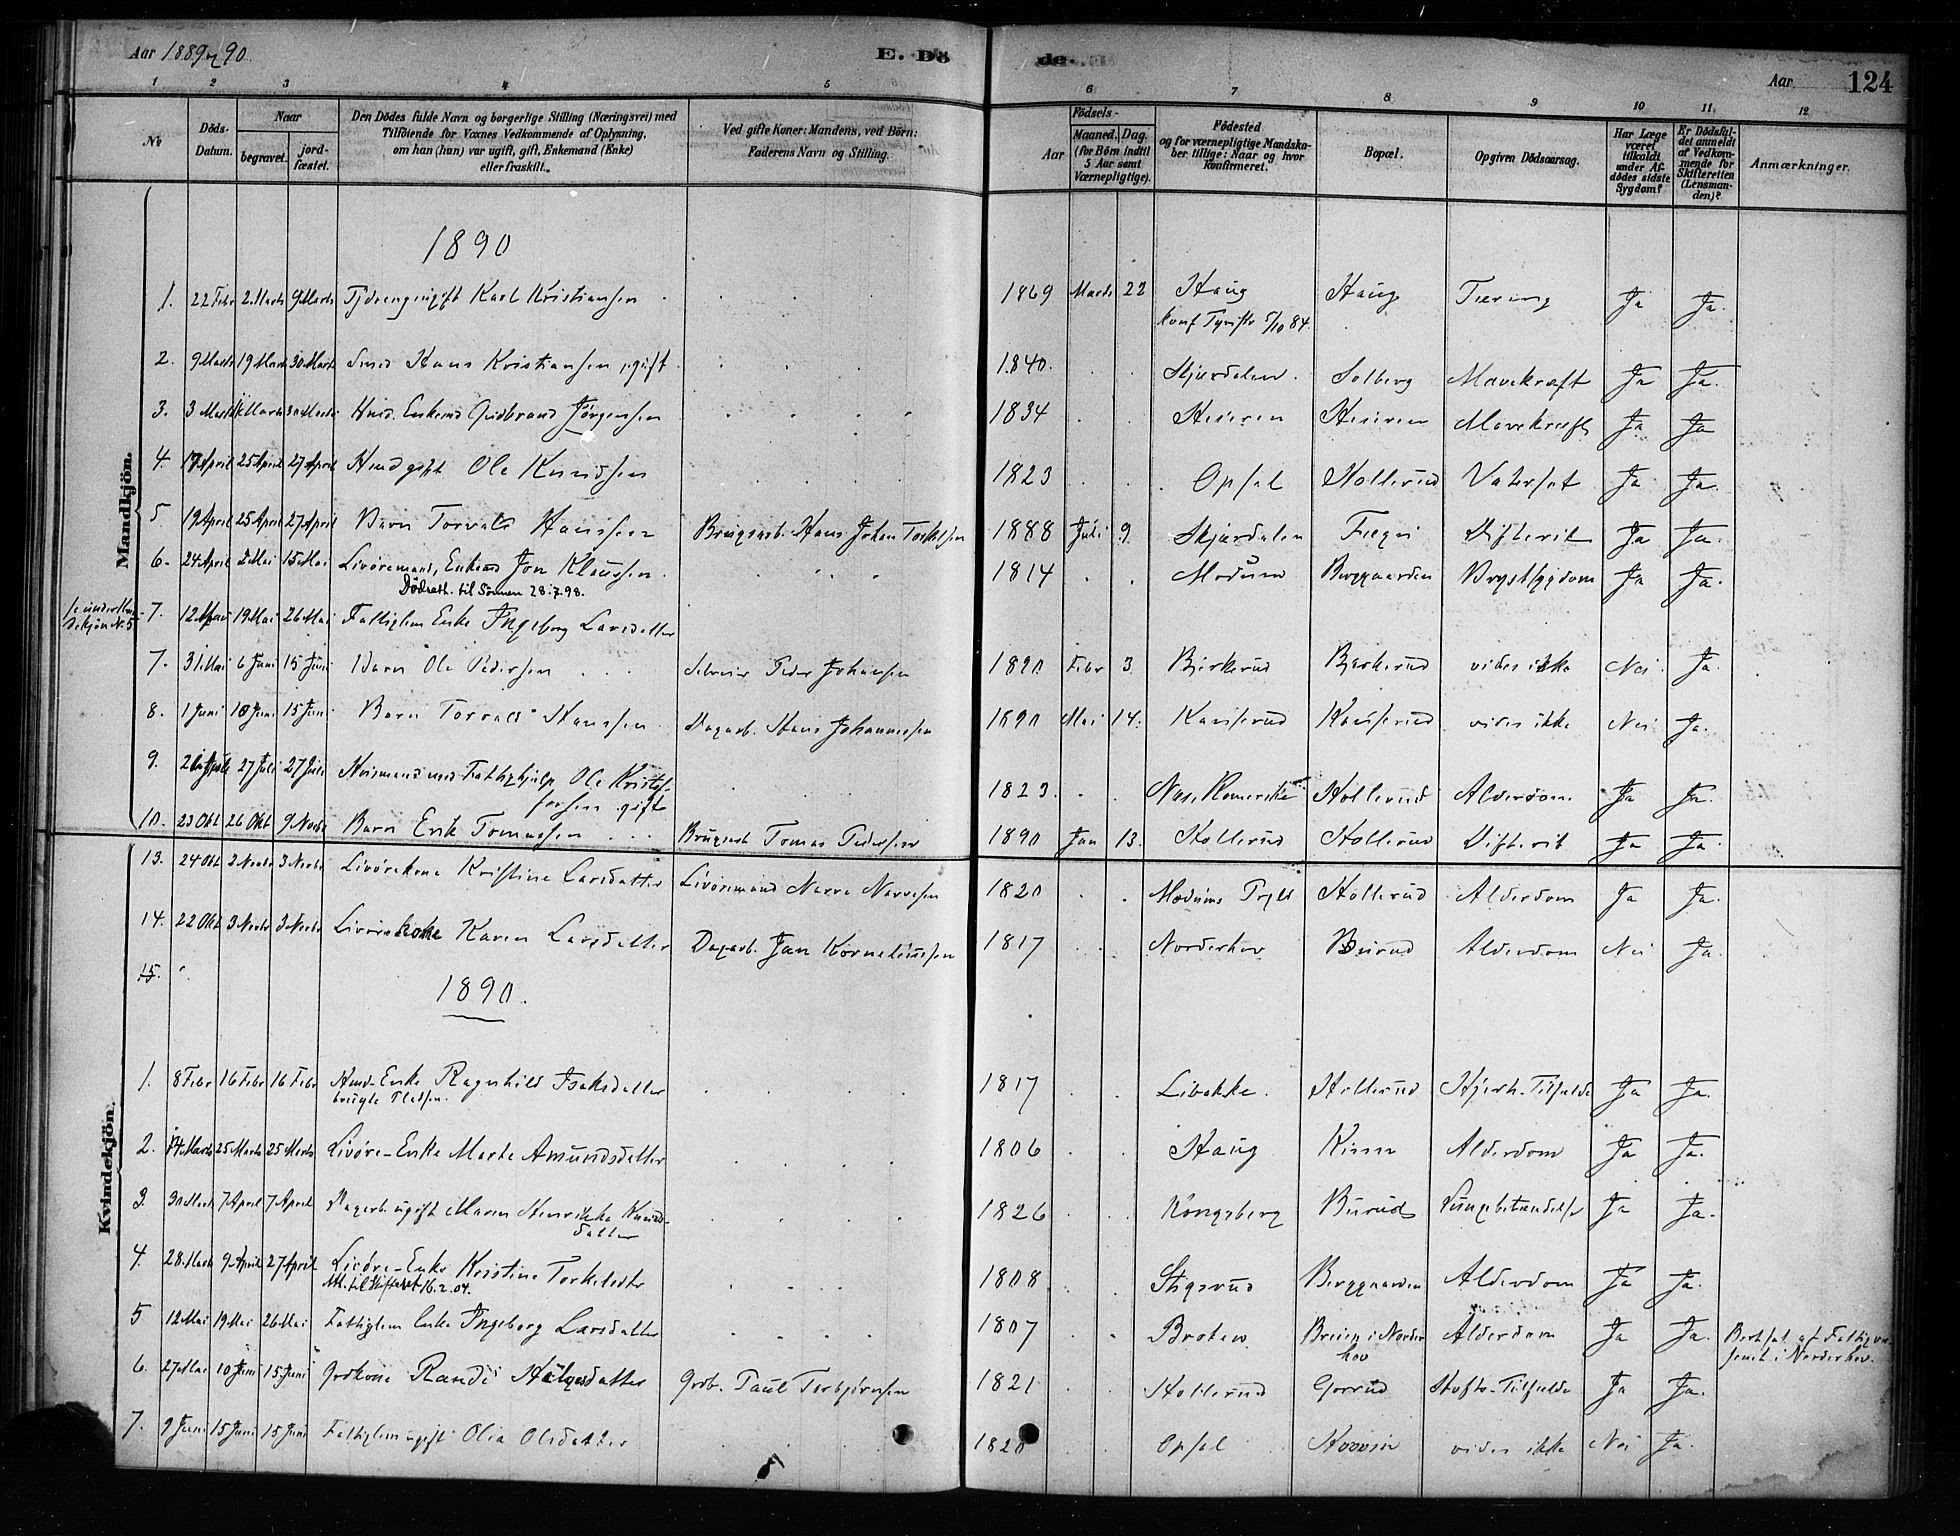 Aar 1889 og 90. E. Dö de. Aar 124
1 2 3 4 5 6 7 8 9 10 11 12
No
Döds-Datum.
Naar
begravet.
jordfæstet.
Den Dödes fulde Navn og borgerlige Stilling (Næringsvei) med
Tilföiende for Voxnes Vedkommende af Oplysning,
om han (hun) var ugift, gift, Enkemand (Enke)
eller fraskilt.
Ved gifte Koner: Mandens, ved Börn:
Faderens Navn og Stilling.
Födsels-
Aar
Maaned. Dag.
(for Börn indtil
5 Aar samt
Værnepligtige).
Födested
og for værnepligtige Mandskaber tillige: Naar og hvor
Konfirmeret.
Bopæl.
Opgiven Dödsaarsag.
Har Læge været tilkaldt under Afdödes sidste Sygdom?
Er Dödsfaldet anmeldt af Vedkommende for Skifteretten (Lensmanden)?
Anmærkninger.
Mandkjön.
1890
1. 22 Febr 2 Marts 9 Marts ugift Karl Kristiansen 1869 Marts 22 Haug Haug Tæring Ja Ja.
konf Tyristr 5/10 84.
2. 9 Marts 19 Marts 30 Marts Smed Hans Kristiansen, gift 1840. Skjærdalen. Solberg Mavekræft Ja Ja.
3. 3 Marts Marts 30 Marts Husmd. Enkemd Gudbrand Jørgensen 1834 Heieren Heieren Mavekræft Ja Ja
4. 17 April 25 April 27 April Husmd gift Ole Knudsen 1823 Opsal Hollerud Vatersot Ja Ja.
5 19 April 25 April 27 April Barn Torvald Hanssen Brugsarb. Hans Johan Torkelsen 1888 Juli 9. Skjærdalen Fægri Difterit Ja Ja.
6. 24 April 2 Mai 15 Mai Livøremand, Enkemd Jon Klaussen. 1814 Modum Berggaarden Brystsygdom Ja Ja.
Dödsath. til Sönnen 28.7.98.
7. 12 19 Mai 26 Mai Fattiglem Enke Ingeborg Larsdatter
7. 31 Mai 6 Juni 15 Juni Barn Ole Pedersen Selveier Peder Johansen 1890. Febr 3. Bjerkerud Bjerkerud vides ikke Nei. Ja.
8. 1 Juni 10 Juni 15 Juni Barn Torvald Hanssen Dagarb. Hans Johannessen 1890 Mai 14. Kavserud Kavserud vides ikke Nei Ja.
9. 27 Juli 27 Juli Husmand med Fattighjælp Ole Kristof-
fersen gift 1823. Nes, Romerike Hollerud Alderdom Ja Ja.
10. 23 Okt 26 Okt 9 Novbr Barn Erik Tomassen Brugsarb Tomas Pedersen 1890 Jan 13. Hollerud Hollerud Difterit Ja Ja.
Kvindekjön.
13. 24 Okt 3 Novbr 3 Novbr Livørekone Kristine Larsdatter Livøremand Narve Narvesen 1820 Modums Prgld Hollerud Alderdom Ja Ja.
14. 22 Okt 3 Novbr 3 Novbr Livørekone Karen Larsdatter Dagarb. Jan Korneliussen 1817 Norderhov Burud Alderdom Nei Ja.
15.
1890.
1. 8 Febr 16 Febr 16 Febr Husmd-Enke Ragnhild Isaksdatter 1817 Libakke. Hollerud Hjerte-Tilfælde Ja Ja.
brugte Pladsen.
2. 14 Marts 25 Marts 25 Marts Livøre-Enke Marte Amundsdatter 1806 Haug Kinn Alderdom Ja Ja.
3. 30 Marts 7 April 7 April Dagarb. ugift Maren Henrikke Knuds-
datter 1826 Kongsberg Burud Lungebetændelse Ja Ja.
4. 28. Marts 9 April 27 April Livøre-Enke Kristine Torkelsdtr 1808 Stigsrud Berggaarden Alderdom Ja Ja.
Att. til Skifteret 16.2.04.
5 12 Mai 19 Mai 26 Mai Fattiglem Enke Ingeborg Larsdatter 1807 Broten Breien i Norder
hov Alderdom Ja Ja. af Fattigvæ-
senet i Norderhov.
6. 27 Mai 10 Juni 15 Juni Grdkone Randi Helgesdatter Grdb. Paul Torbjørnsen 1821 Hollerud Gorrud Hofte-Tilfælde Ja Ja.
7. 9 Juni 15 Juni 15 Juni Fattiglem ugift Olia Olsdatter 1820 Opsal Hovsin vides ikke Nei Ja.